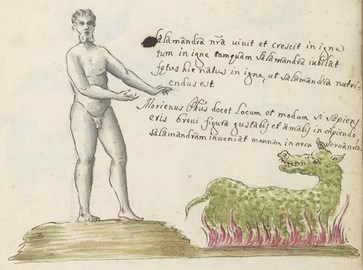 Salamandra nr̃a uiuit et crescit in igne
tum in igne tamquam Salamandra iubilat
fętus hic natus in igne, ut salamandra nutri-
endus est
Morienus Phũs docet Locum et modum si sapies
eris breui figura gustabis et amabis in capiendo
salamandram inueniat mannam in orca